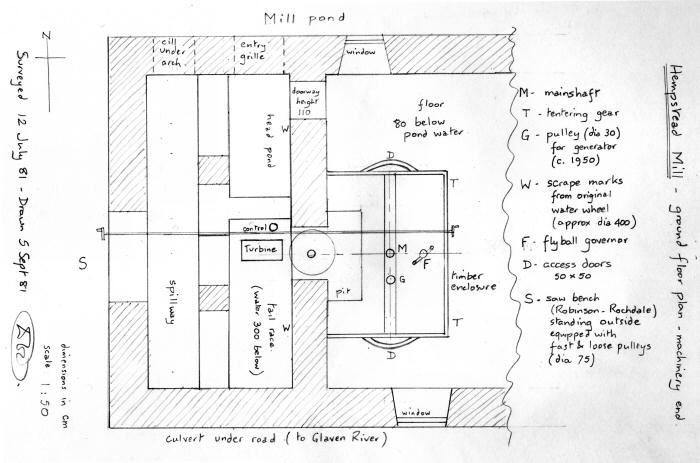 Mill pond
Hempstead Mill - ground floor plan - machinery end.
cill
under
arch
entry
grille
window
doorway
height
110
floor
80 below
pond water
head pond
W
D
T
control
Turbine
M
F
G
pit
timber
enclosure
S
spillway
tail race
(water 300 below)
W
T
D
window
culvert under road (to Glaven River)
M - mainshaft
T - tentering gear
G - pulley (dia 30)
for generator
(c. 1950)
W - scrape marks
from original
water wheel
(approx dia 400)
F - flyball governor
D - access doors
50 x 50
S - saw bench
(Robinson - Rochdale)
standing outside
equipped with
fast & loose pulleys
(dia 75)
N
Surveyed 12 July 81 - Drawn 5 Sept 81
dimensions in cm
scale 1:50